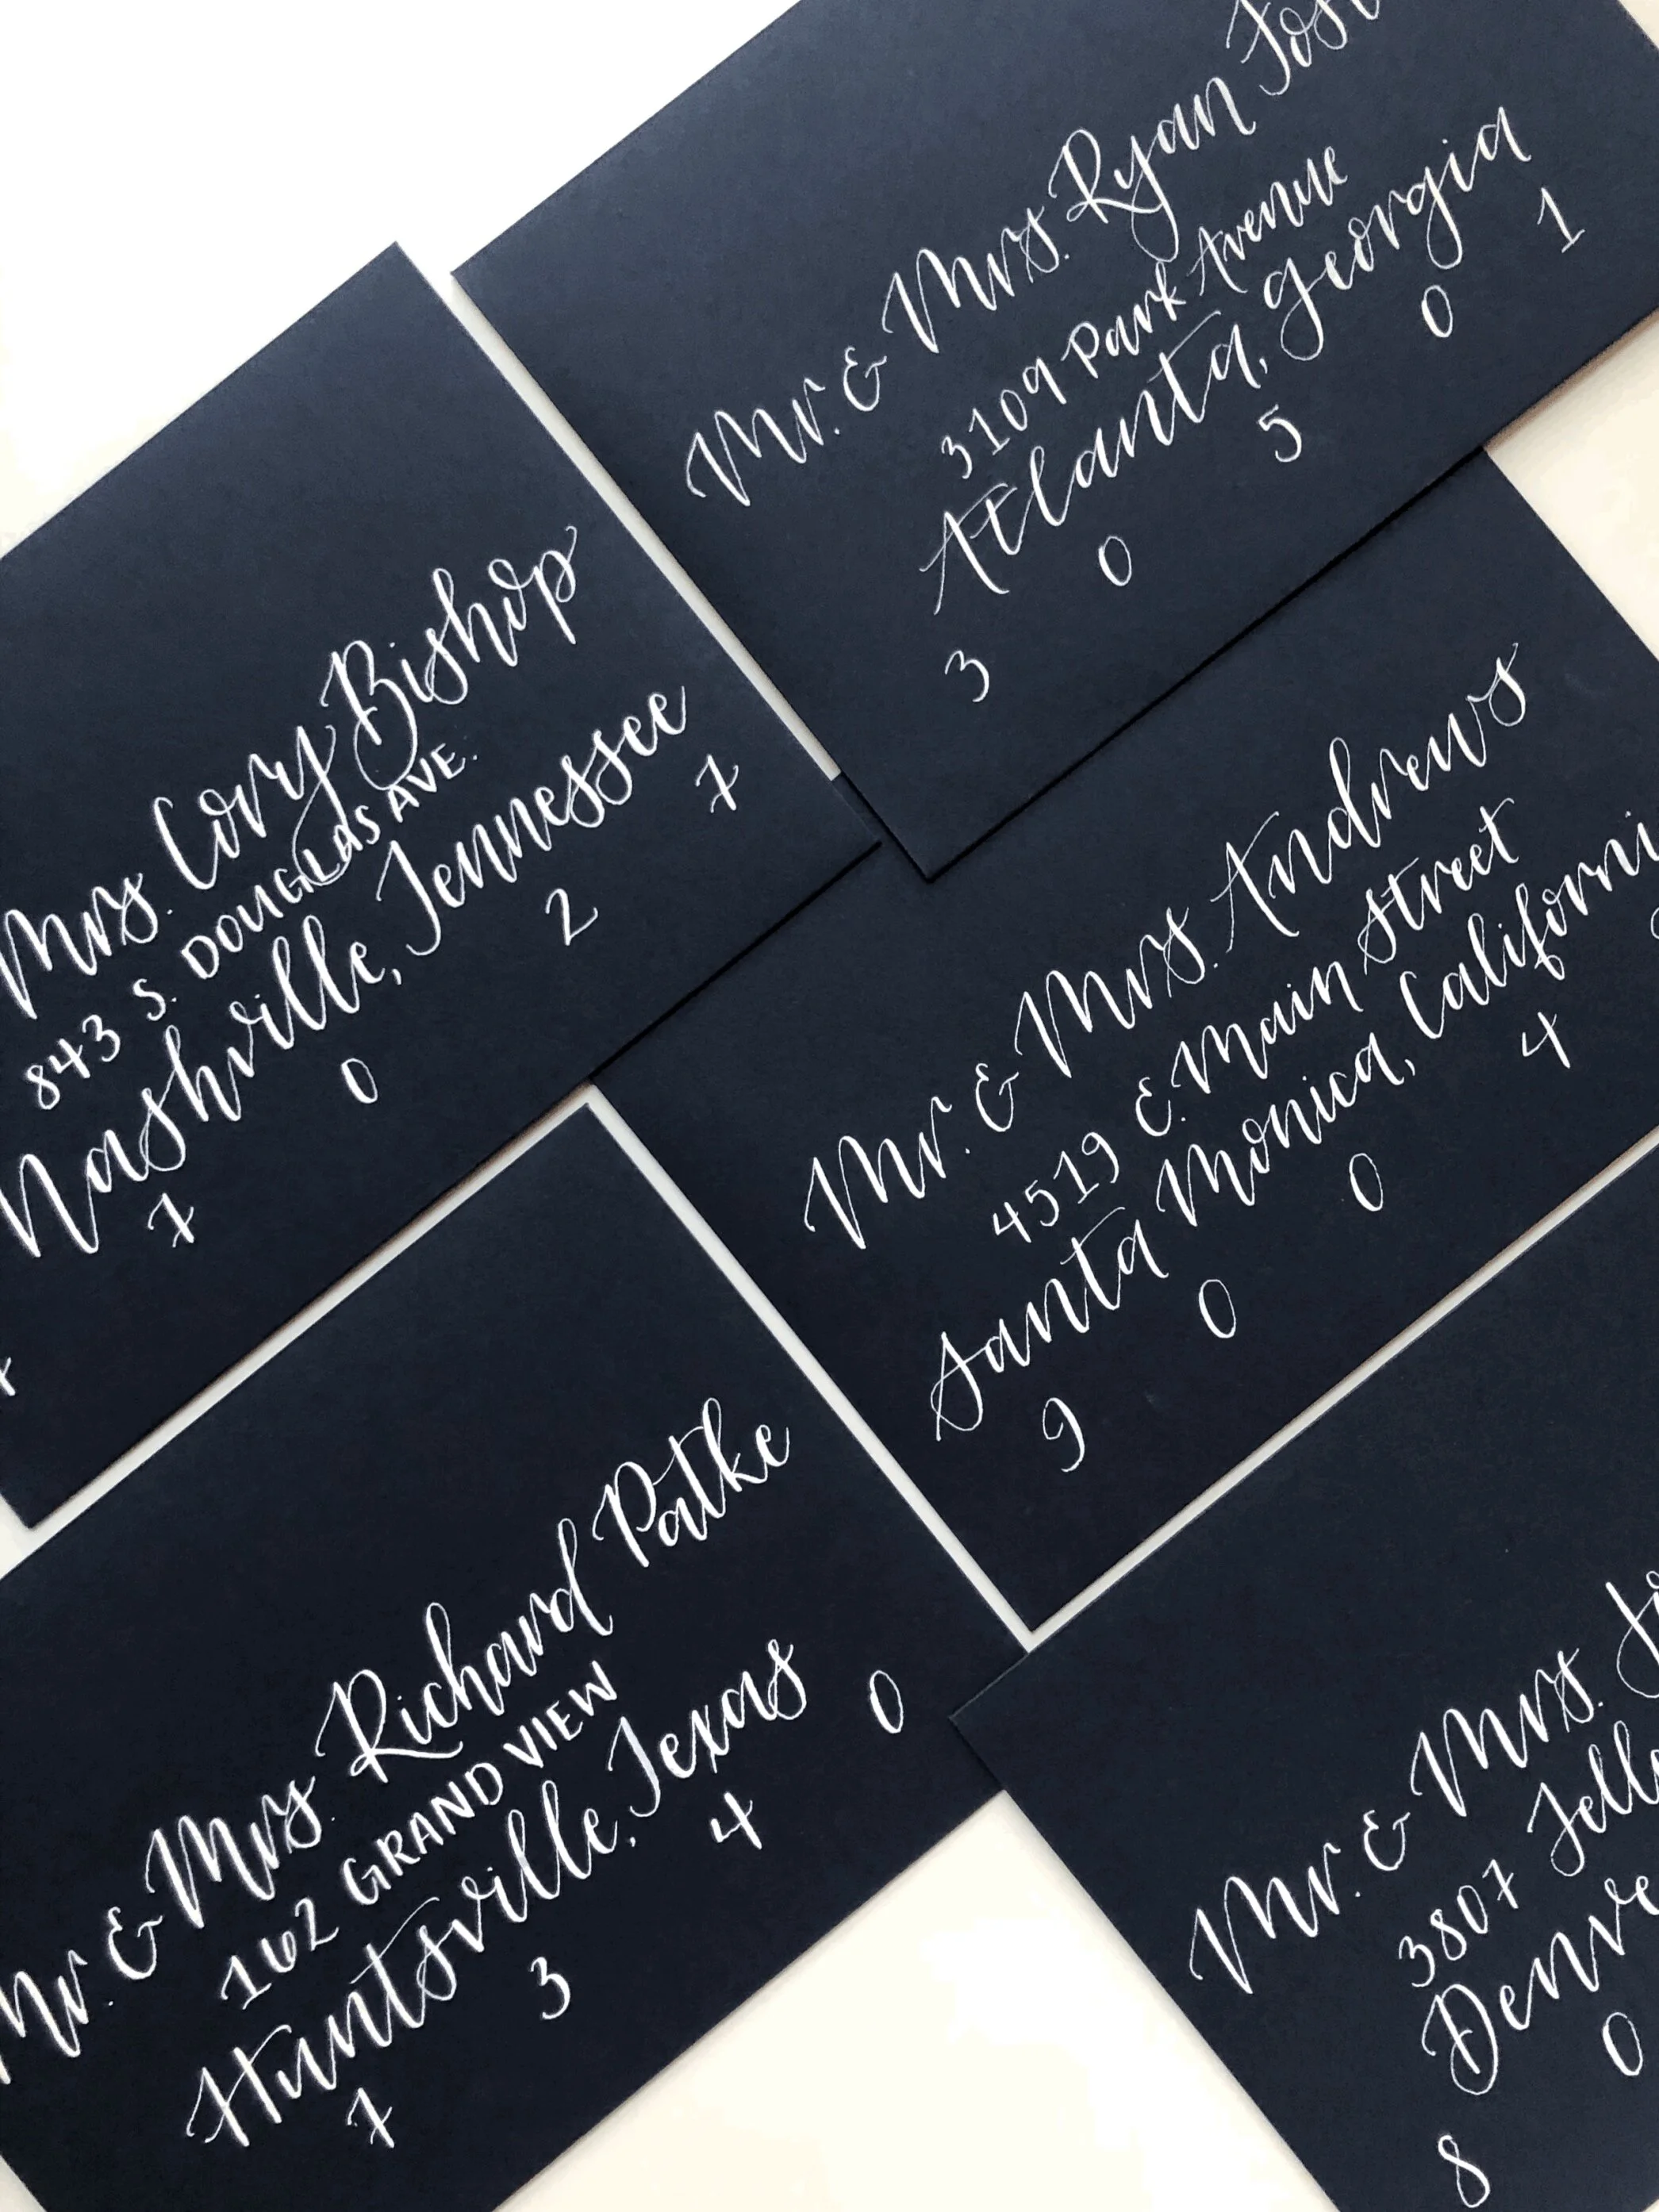 Mr. & Mrs. Ryan
3109 Park Avenue
Atlanta, Georgia
3 0 5 0 1
Mrs. Cory Bishop
843 S. DOUGLAS AVE.
Nashville, Tennessee
7 0 2 7
Mr. & Mrs. Andrews
4519 E. Main Street
Santa Monica, Californi
9 0 0 4
Mr. & Mrs. Richard Patke
162 GRAND VIEW
Huntsville, Texas
7 3 4 0
Mr. & Mrs.
3807
Denve
8 0